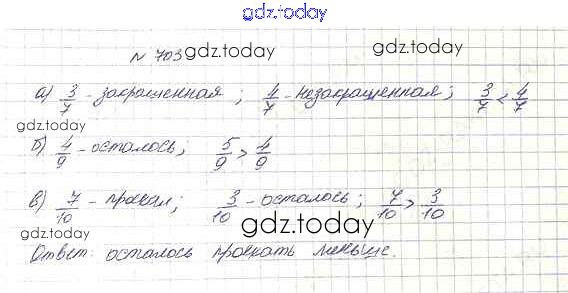 gdz.today
№ 703 gdz.today gdz.today
а) 3/7 - закрашенная; 4/7 - незакрашенная; 3/7 < 4/7
gdz.today
б) 4/9 - осталось; 5/9 > 4/9
в) 7/10 - проехал; 3/10 - осталось; 7/10 > 3/10
gdz.today gdz.today
Ответ: осталось проехать меньше.